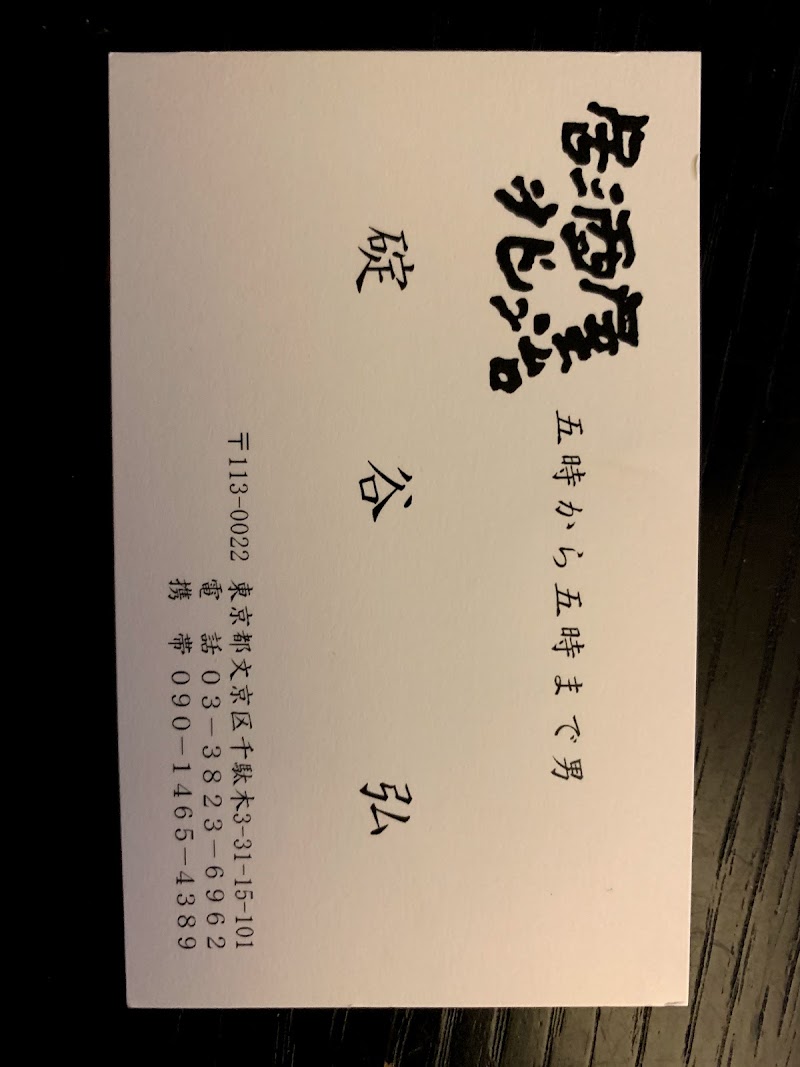 居酒屋
五時から五時まで男
碇谷 弘
〒113-0022 東京都文京区千駄木3-31-15-101
電話 03-3823-6962
携帯 090-1465-4389